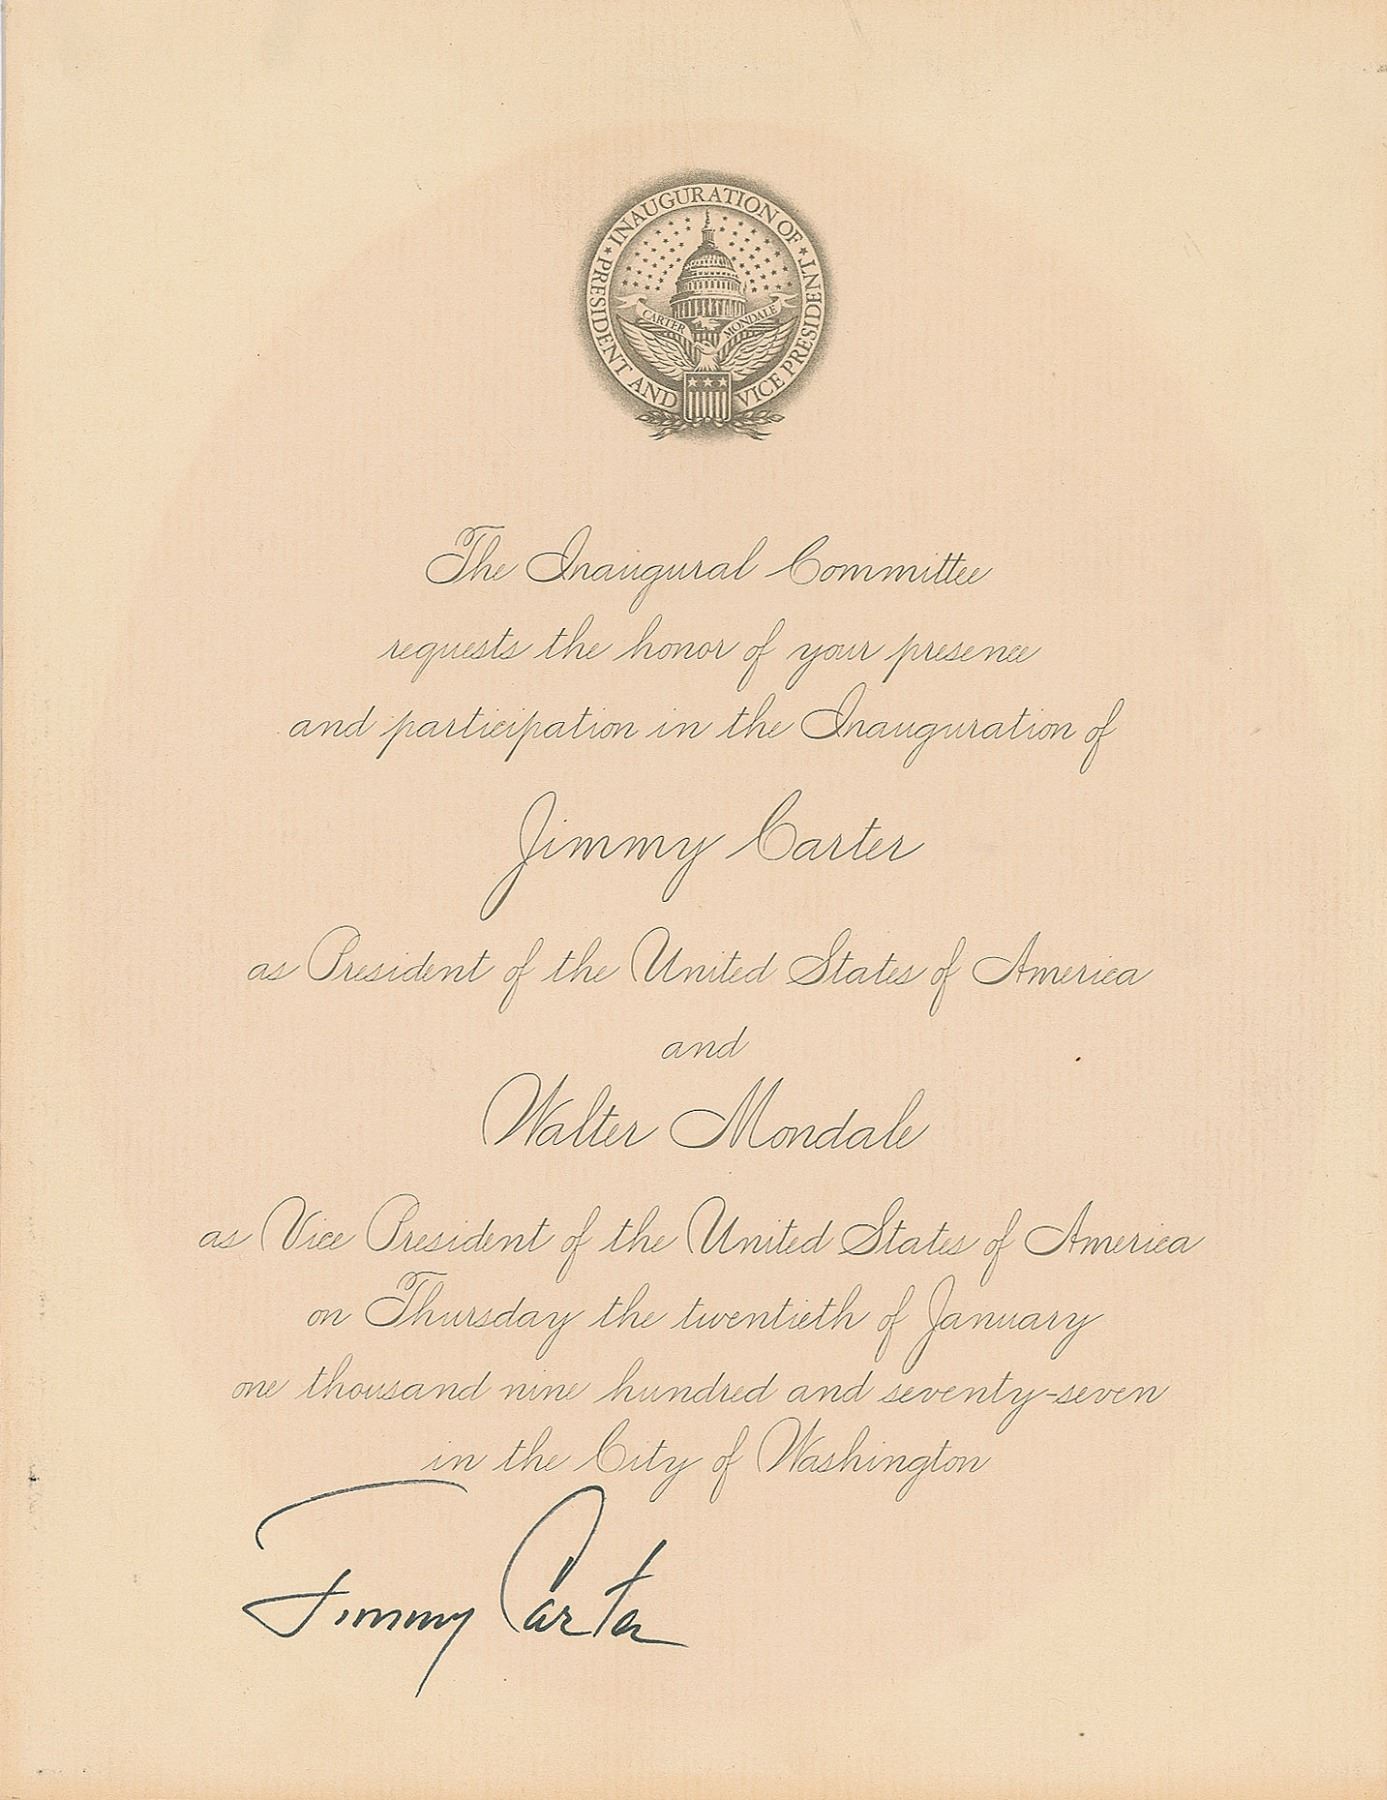 INAUGURATION OF
PRESIDENT AND VICE PRESIDENT
CARTER MONDALE
The Inaugural Committee
requests the honor of your presence
and participation in the Inauguration of
Jimmy Carter
as President of the United States of America
and
Walter Mondale
as Vice President of the United States of America
on Thursday the twentieth of January
one thousand nine hundred and seventy-seven
in the City of Washington
Jimmy Carter